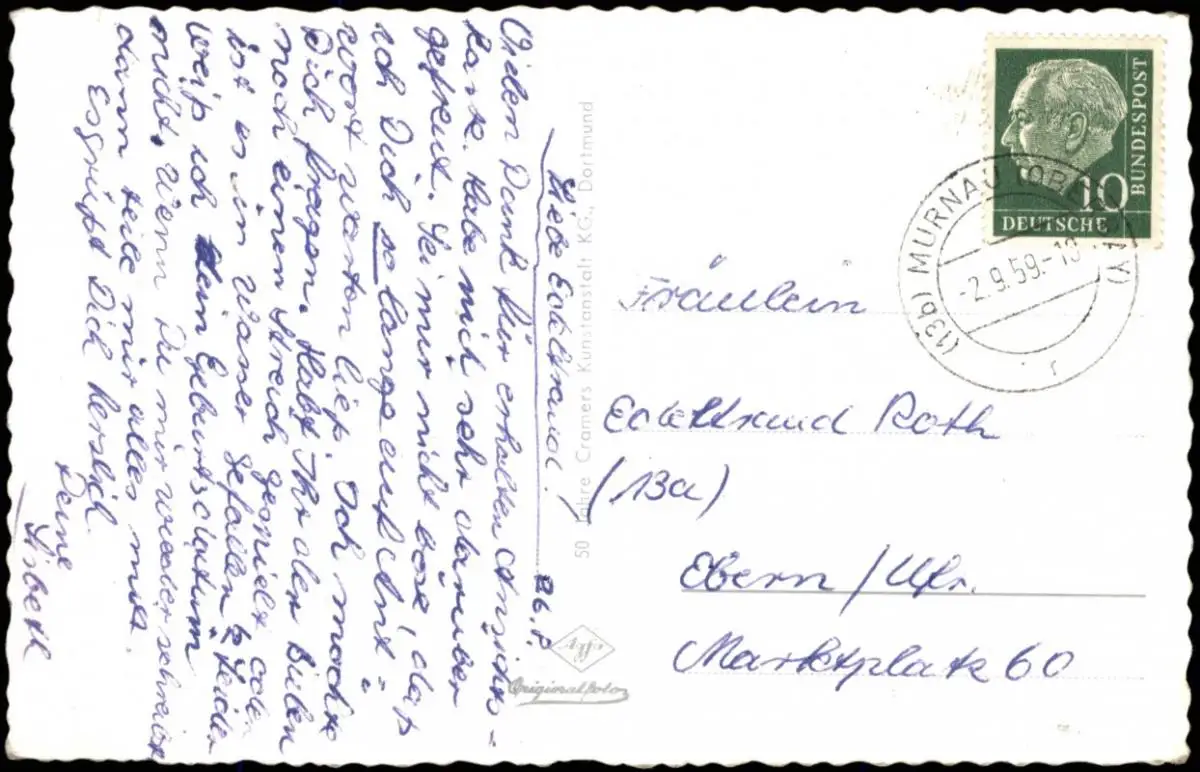 Liebe Edeltraud!
Vielen Dank für erhalten Ansichts-
karte. Habe mich sehr darüber
gefreut. Sei mir nicht böse, daß
ich Dich so lange auf Ant-
wort warten ließ. Ich möchte
Dich fragen. Habt Ihr der Buben
noch einen Streich gespielt oder
ist es in Wasser gefallen? Leider
weiß ich Dein Geburtsdatum
nicht. Wenn Du mir wieder schreibst
dann teile mir alles mit.
Es grüßt Dich herzlich
Deine
Lisbeth
50 Jahre Cramers Kunstanstalt KG., Dortmund
Agfa
Originalfoto
DEUTSCHE
BUNDESPOST
10
(13b) MURNAU (OBERBAY)
-2.9.59.-18
r
Fräulein
Edeltraud Roth
(13a)
Ebern / Ufr.
Marktplatz 60